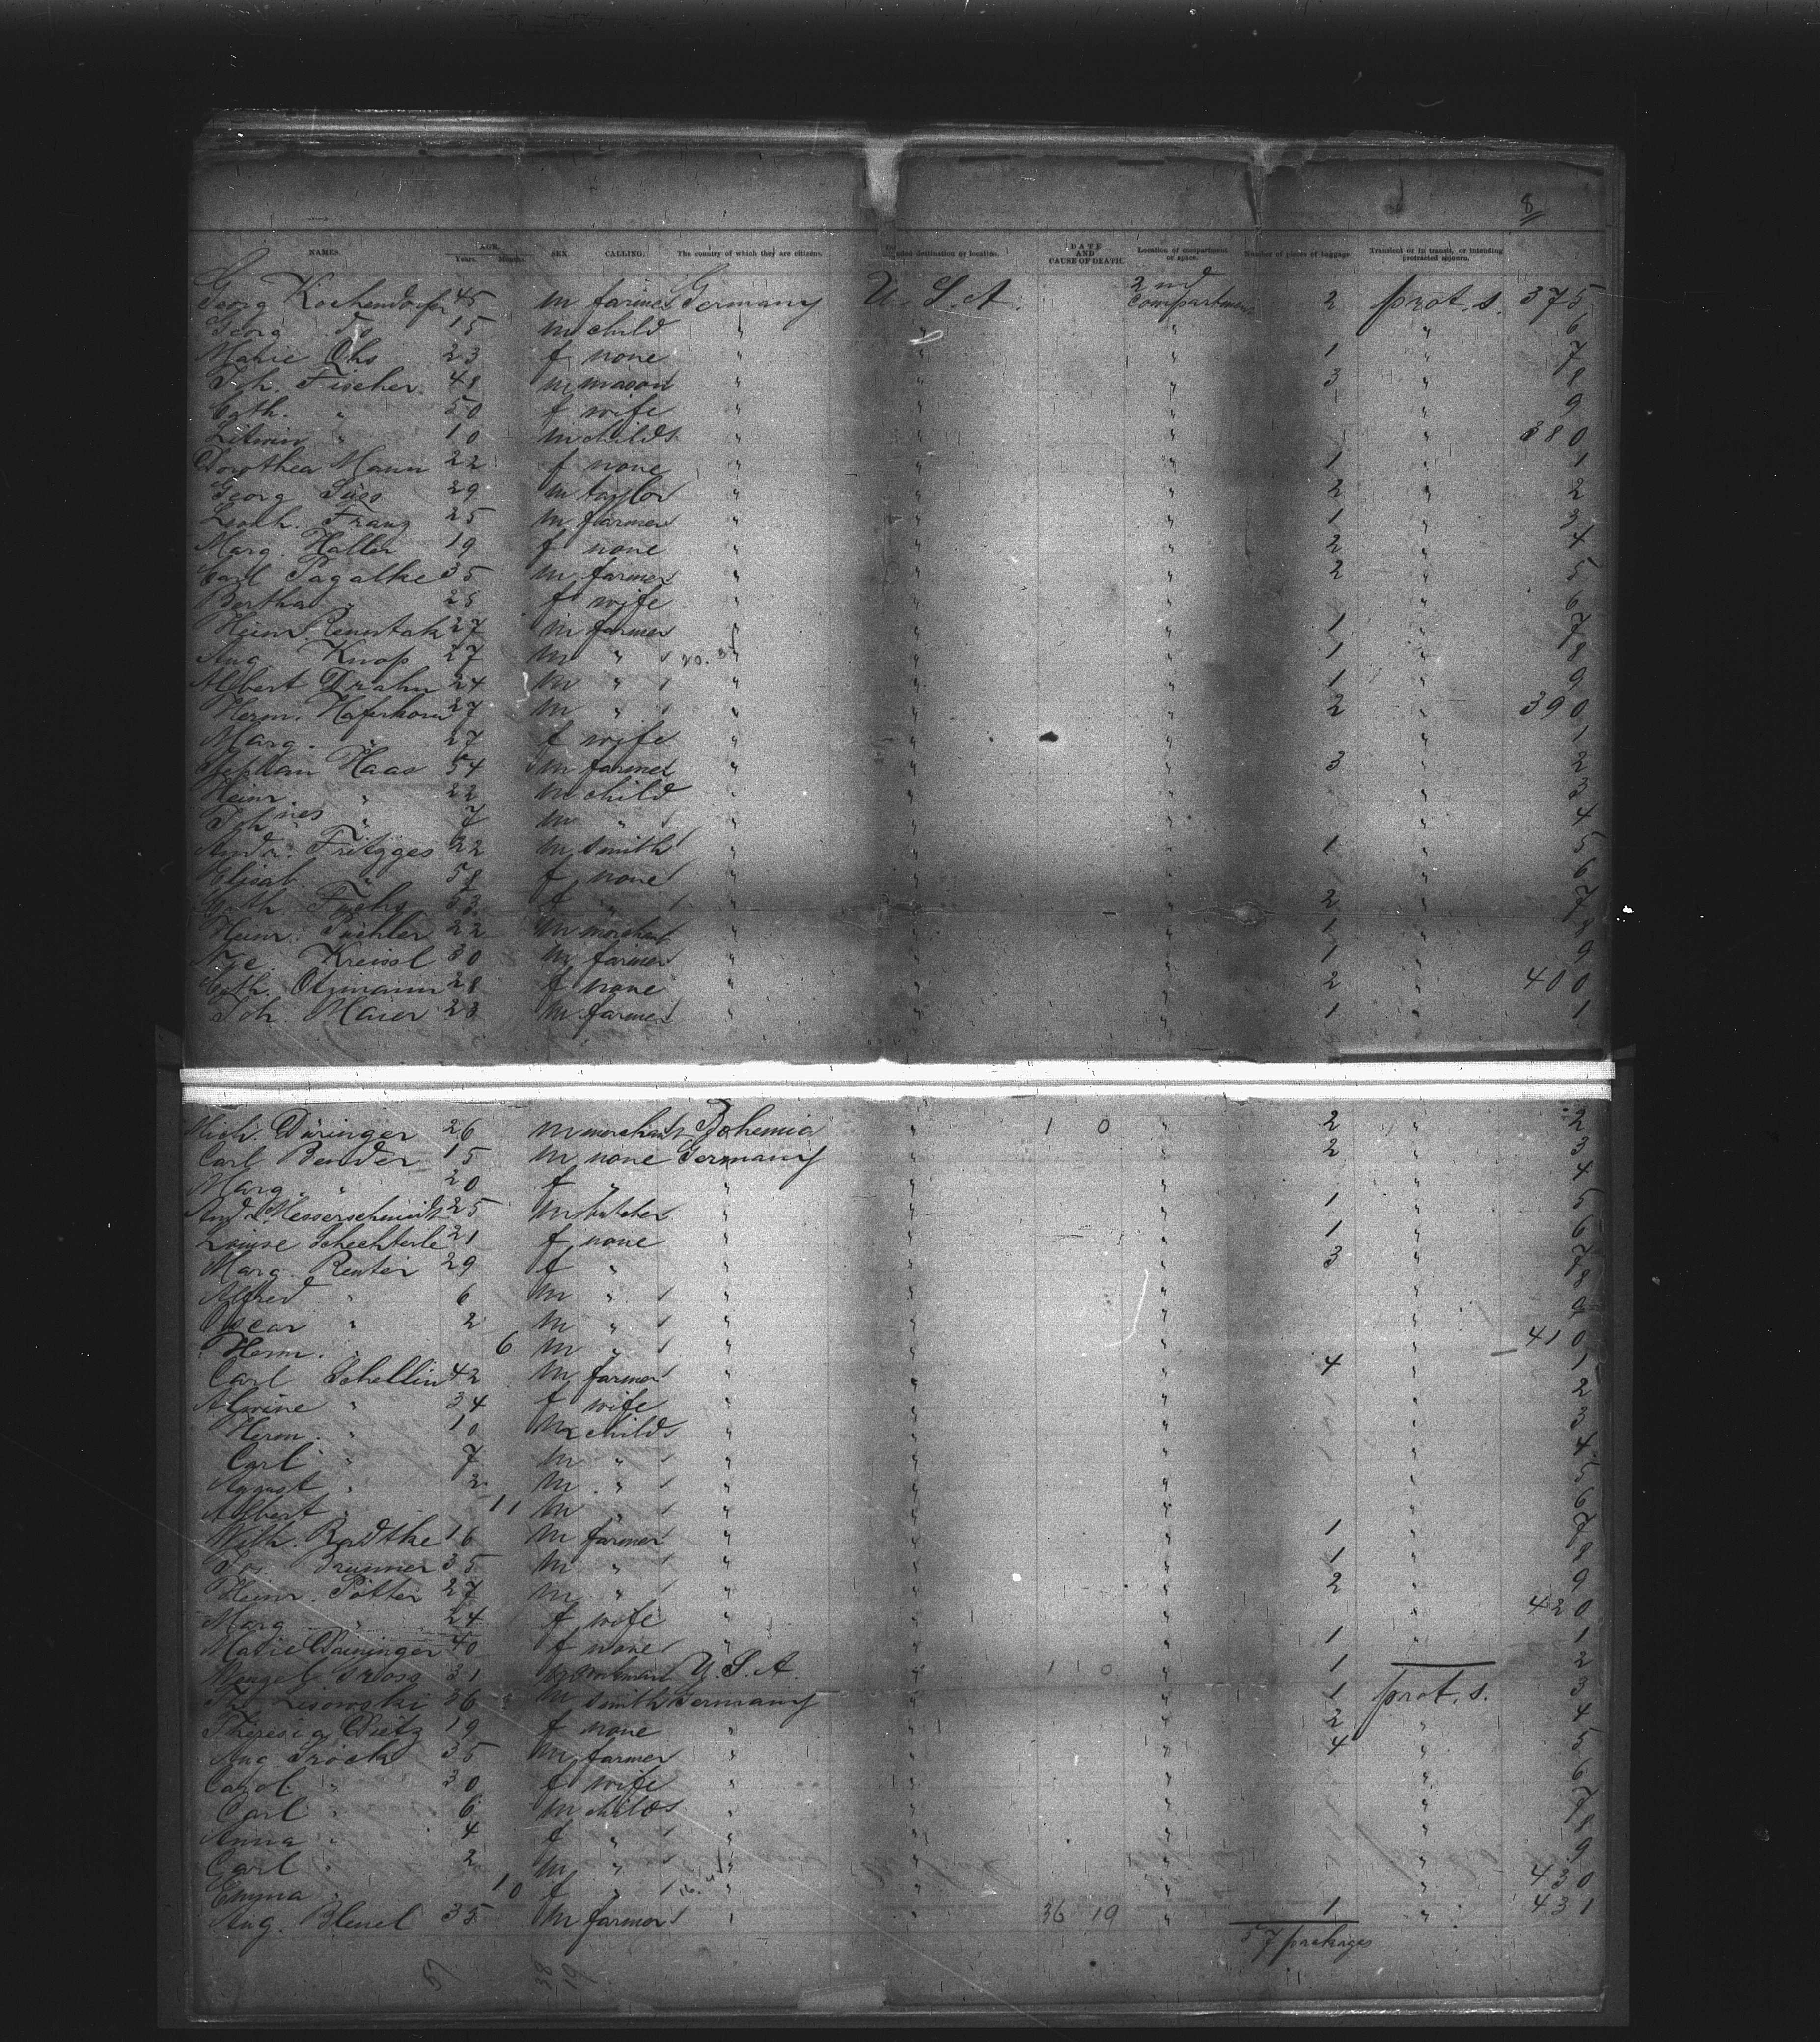 8
NAMES. AGE. Years. Months. SEX. CALLING. The country of which they are citizens. destination or location. DATE AND CAUSE OF DEATH. Location of compartment or space. Number of pieces of baggage. Transient or in transit, or intending protracted sojourn.
Georg Kochendorfer 45 m farmer Germany U. S. A. 2nd compartment 2 prot. s. 375
Georg do 15 m child " " " " 6
Marie Ohs 23 f none " " " 1 " 7
Joh. Fischer 48 m mason " " " 3 " 8
Cath. " 50 f wife " " " " 9
" 10 m child " " " " 380
Dorothea Mann 22 f none " " " 1 " 1
Georg Süss 29 m taylor " " " 2 " 2
Leonh. Franz 25 m farmer " " " 1 " 3
Marg. Haller 19 f none " " " 2 " 4
Carl Pagalke 35 m farmer " " " 2 " 5
Bertha " 25 f wife " " " " 6
Heinr. 27 m farmer " " " 1 " 7
Aug. Knop 27 m " " " " 1 " 8
Albert Drahn 24 m " " " " 1 " 9
Herm. Haferkorn 27 m " " " " 2 " 390
Marg. " 27 f wife " " " " 1
Stephan Haas 54 m farmer " " " 3 " 2
Heinr. " 22 m child " " " " 3
Johnes " 7 m " " " " " 4
Andr. Fritzges 22 m smith " " " 1 " 5
Elisab. " 58 f none " " " " 6
Cath. Fuchs 53 f " " " " 2 " 7
Heinr. 22 m merchant " " " 1 " 8
Kreissl 30 m farmer " " " 1 " 9
Cath. Otzmann 28 f none " " " 2 " 400
Joh. Maier 23 m farmer " " " 1 " 1
Mich. Düringer 26 m merchant Bohemia " 1 0 " 2 " 2
Carl Bender 15 m none Germany " " 2 " 3
Marg. " 20 f " " " " " 4
Andr. Messerschmidt 25 m butcher " " " 1 " 5
Louise Schechterle 21 f none " " " 1 " 6
Marg. Reuter 29 f " " " " 3 " 7
Alfred " 6 m " " " " " 8
Oscar " 2 m " " " " " 9
Herm. " 6 m " " " " " 410
Carl Schellin 42 m farmer " " " 4 " 1
Alwine " 34 f wife " " " " 2
Herm. " 10 m childs " " " " 3
Carl " 7 m " " " " " 4
August " 2 m " " " " " 5
Albert " 11 m " " " " " 6
Wilh. Radtke 16 m farmer " " " 1 " 7
Brunner 35 m " " " " 1 " 8
Heinr. Potter 27 m " " " " 2 " 9
Marg. " 24 f wife " " " " 420
Marie Daininger 40 f none " " " 1 " 1
Gross 31 m U. S. A. " 1 0 " 1 2
Lisowski 36 m smith Germany " " 1 prot. s. 3
Theresia Dietz 19 f none " " " 2 " 4
Aug. 35 m farmer " " " 4 " 5
Carol. " 30 f wife " " " " 6
Carl " 6 m childs " " " " 7
Anna " 4 f " " " " " 8
Carl " 2 m " " " " " 9
Emma " 10 f " " " " " 430
Aug. Bleuel 35 m farmer " " 36 19 " 1 " 431
57 packages
57 38 19